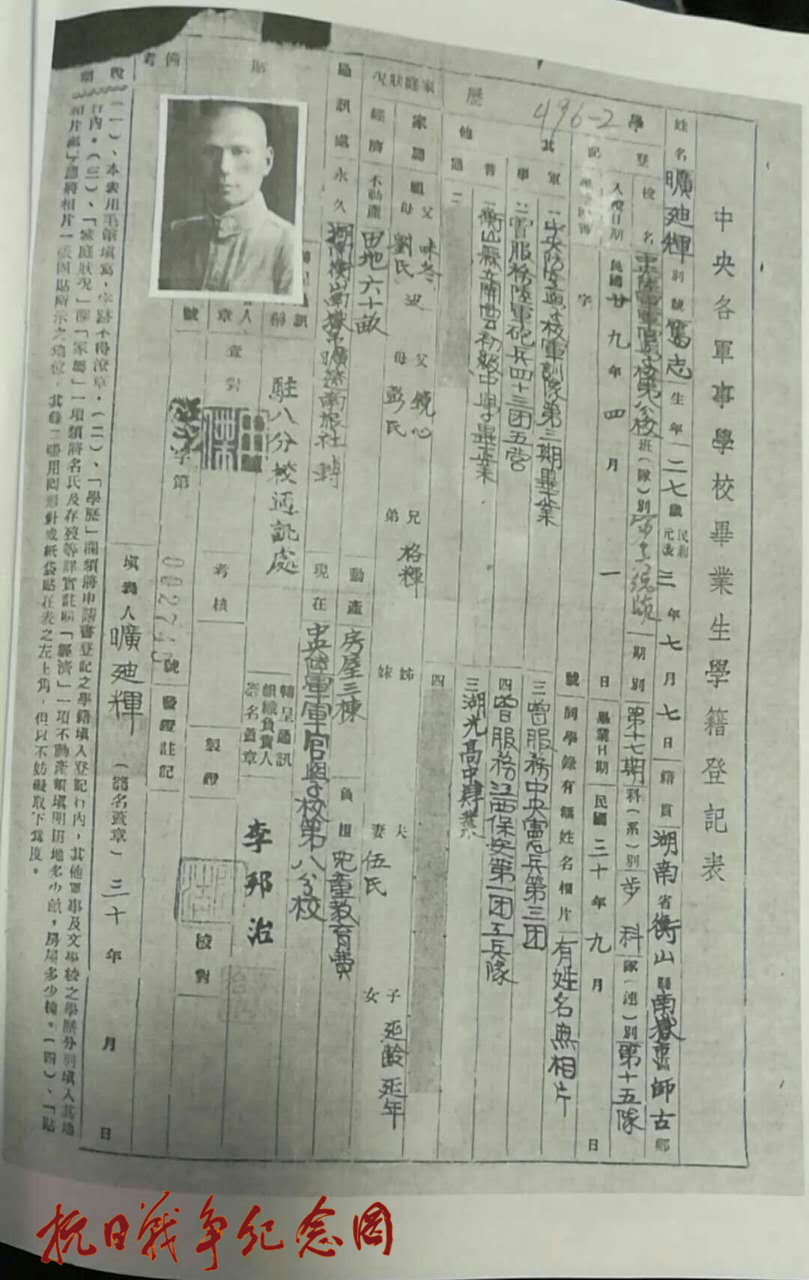 中央各軍事學校畢業生學籍登記表
姓名 曠廸輝 別號 篤志 生年 二七歲 民國元前 三年七月七日 籍貫 湖南省衡山縣南嶽 師古鄉
學歷
登記
校名 中央陸軍軍官學校第八分校 班(隊)別 期別 第十七期 科(系)別 步科 隊(連)別 第十五隊
入校日期 民國廿九年四月一日 畢業日期 民國三十年九月 日
字 號 同學錄有無姓名相片 有姓名無相片
其他
軍學
一 中央防空學校軍訓隊第三期畢業
二 曾服務陸軍砲兵四十三团五营
三 曾服務中央憲兵第三团
四 曾服務江西保安第一团工兵隊
普通
一 衡山縣立開雲初級中學畢業
二
三 湖光高中肄業
四
家庭狀況
家屬 祖 父 味冬 母 劉氏 父 鏡心 母 彭氏 兄弟 格輝 姊妹 夫妻 伍氏 子女 延齡 延年
經濟 不動產 田地六十畝 動產 房屋三棟 負擔 兒童教育費
通訊處 永久 現在 中央陸軍軍官學校第八分校
駐八分校通訊處
轉呈通訊組織負責人署名蓋章 李邦治
章 查對 考核 製證 校對
號 字第 002743 號 發證註記
填表人 曠廸輝 (署名蓋章) 三十年 月 日
貼
備考
說明
(一)、本表用毛筆填寫，字跡不得潦草。(二)、「學歷」欄須將申請書登記之學籍填入登記行內，其他軍事及文學校之學歷分別填入其他
行內。(三)、「家庭狀況」欄「家屬」一項須將名氏及存歿等詳實註明「經濟」一項不動產須填明田地多少畝，房屋多少棟。(四)、「貼
相片處」應將相片一張固貼所示之地位，其餘二張用回形針或紙袋貼在表之左上角，但以不妨礙取下為度。
496-2
抗日战争纪念网